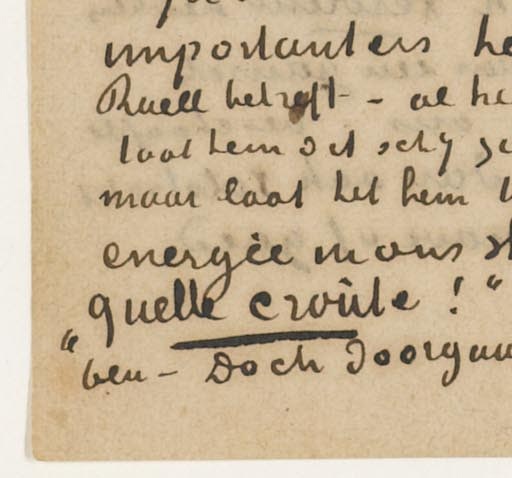 importanters he
Ruell betreft – al he
laat hem dit schij
maar laat het hem
energie mons
"quelle croûte!"
ben – Doch doorgaan